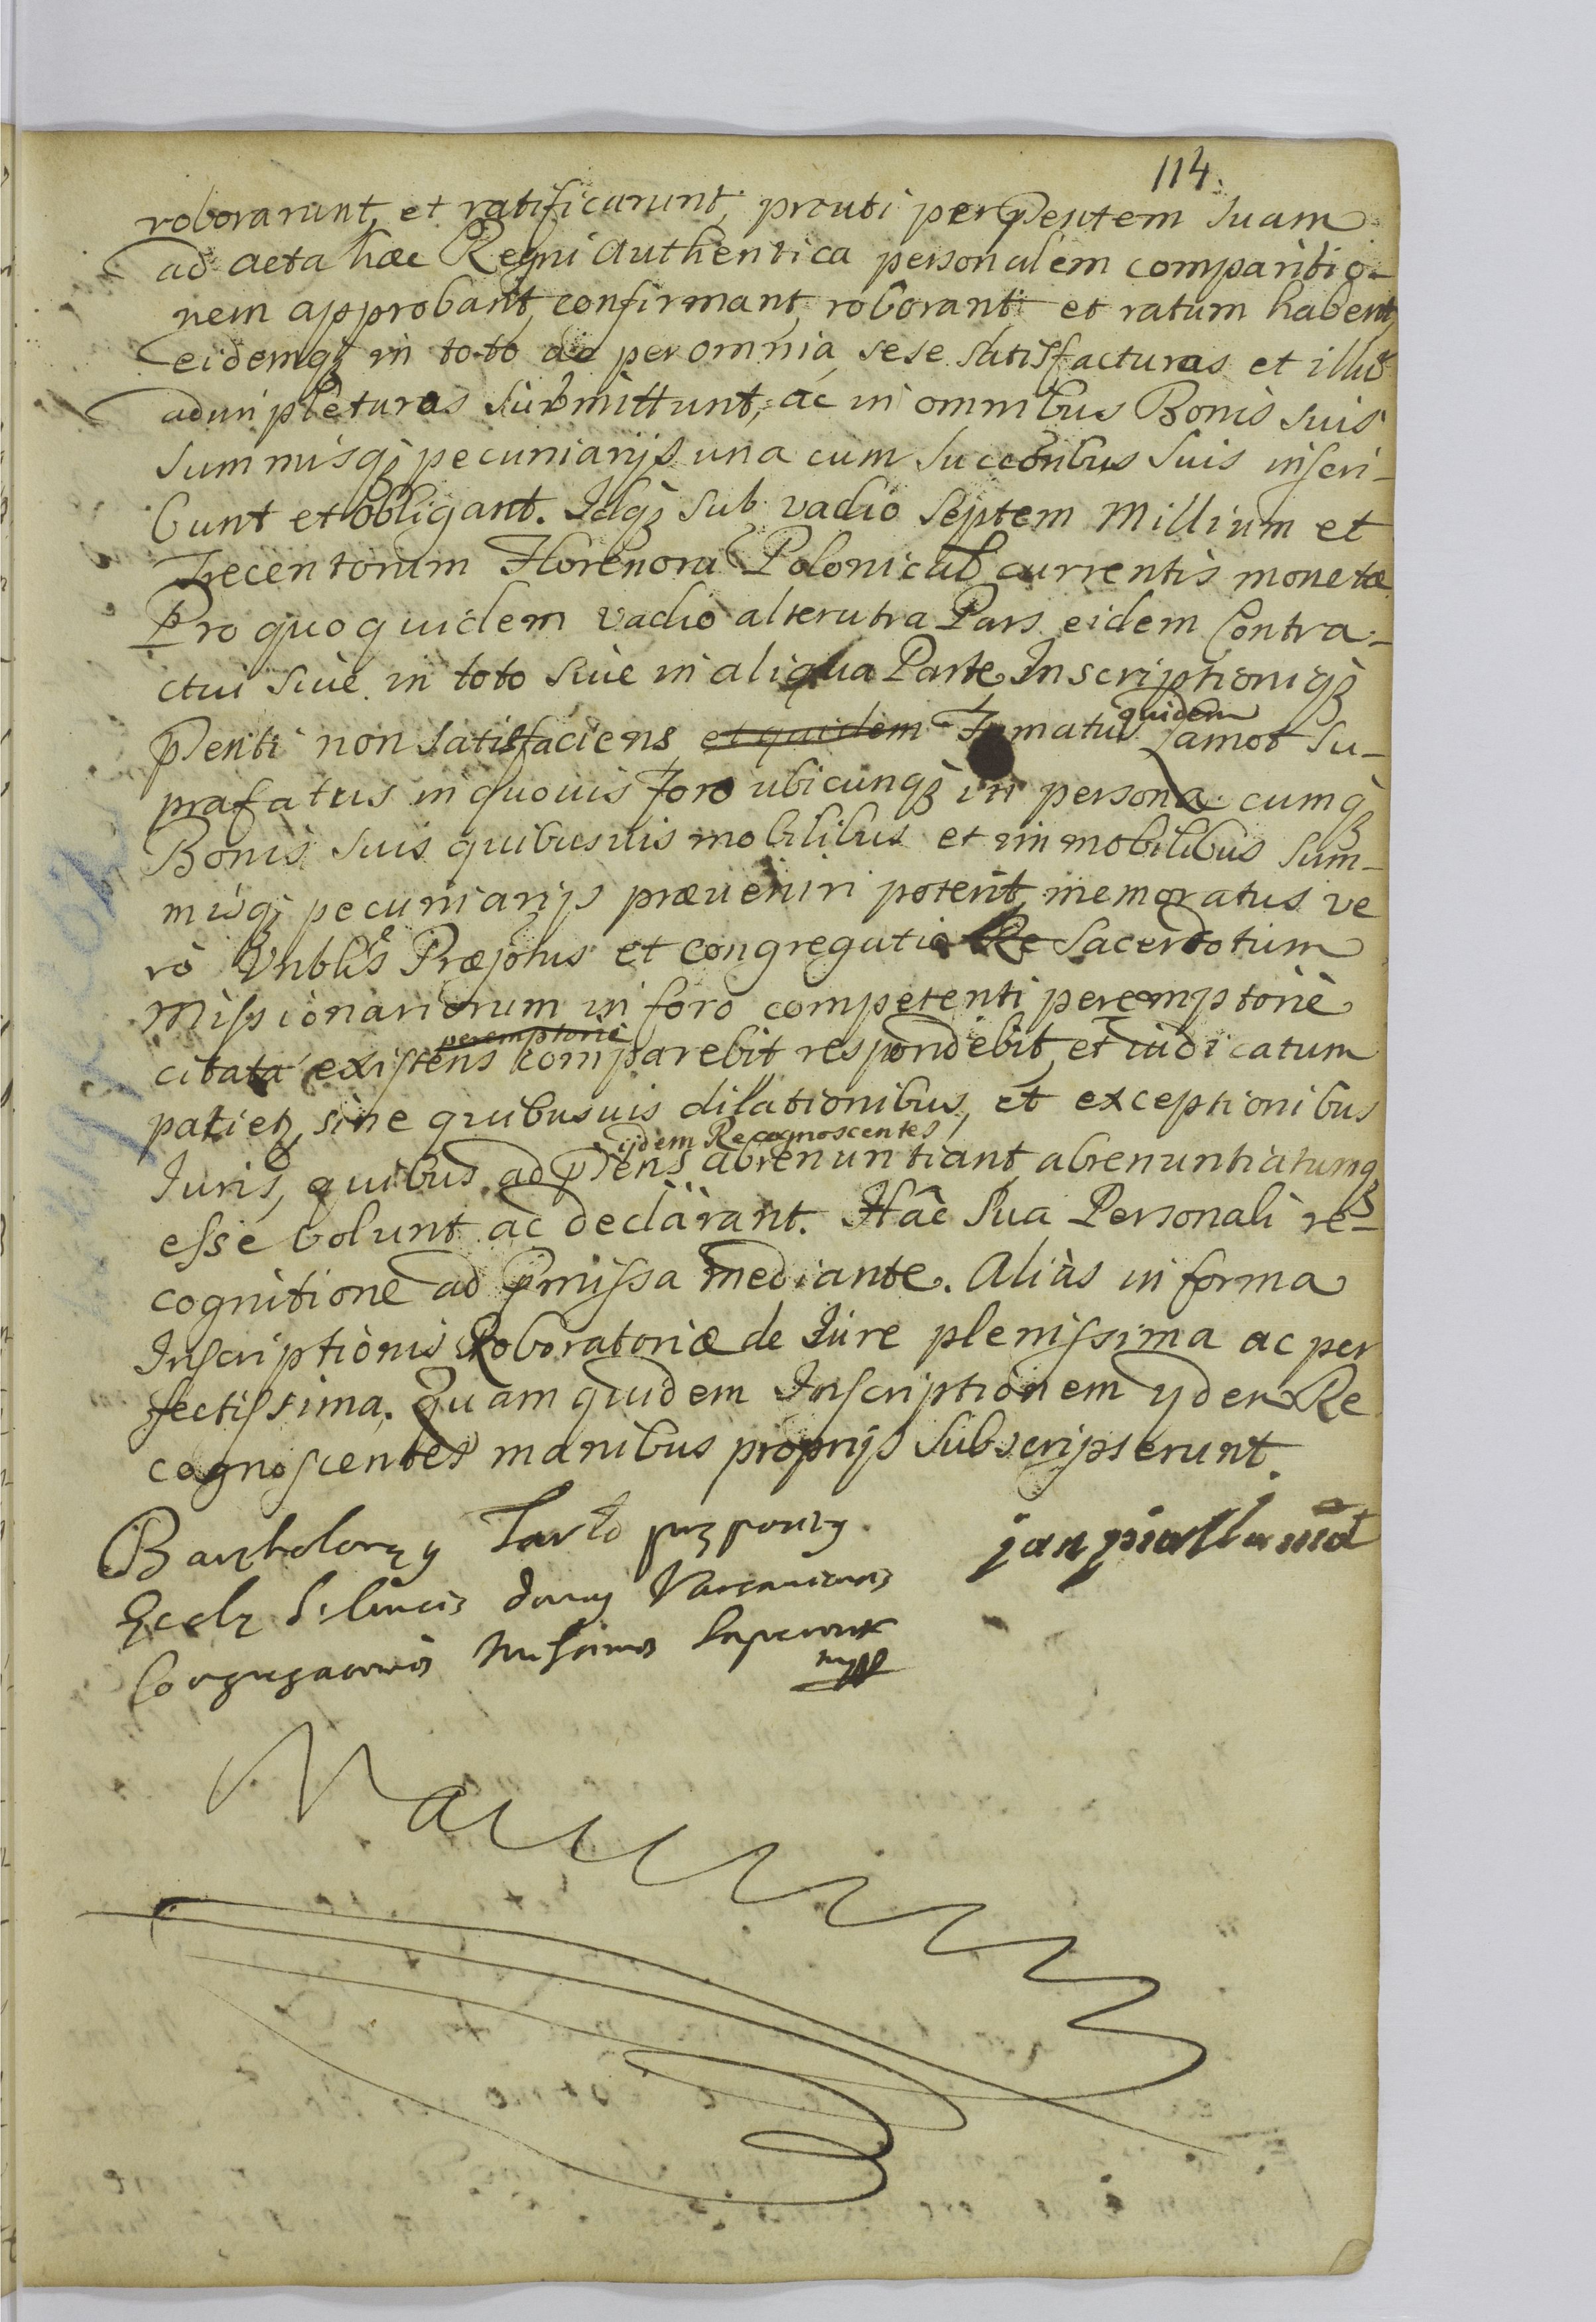 114.
roborarunt, et ratificarunt, prouti per pñtem suam
ad acta hæc Regni Authentica personalem comparitio-
nem approbant, confirmant, roborant et ratum habent,
eidemqꝫ in toto ac per omnia, sese satisfacturos et illud
adimpleturos submittunt, ac in omnibus Bonis suis
summisqꝫ pecuniarijs una cum succõribus suis inscri-
bunt et obligant. Idqꝫ sub vadio septem Millium et
Trecentorum Florenorũ Polonical currentis monetæ
Pro quo quidem vadio alterutra Pars eidem Contra-
ctui siue in toto siue in aliqua Parte, Inscriptioniqꝫ
pñti non satisfaciens, et quidem quidem Lamot su-
prafatus in quouis Foro ubicunqꝫ in persona cumqꝫ
Bonis suis quibusuis mobilibus et immobilibus sum-
misqꝫ pecuniarijs præueniri poterit, memoratus ve
rò Vnblis Præptus et Congregatio Re Sacerdotum
Missionariorum in foro competenti peremptoriè
citata existens peremptoriè comparebit respondebit, et iudicatum
patietꝫ, sine quibusuis dilationibus, et exceptionibus
Iuris, quibus ad pñens ijdem Recognoscentes abrenuntiant, abrenuntiatumqꝫ
esse volunt ac declarant. Hâc sua Personali re-
cognitione ad pmissa mediante. Aliàs in forma
Inscriptionis Roboratoriæ de Iure plenissima ac per
fectissima. Quam quidem Inscriptionem ijdem Re
cognoscentes manibus proprijs subscripserunt.
Bartholomęy Tarło
jan
mpp